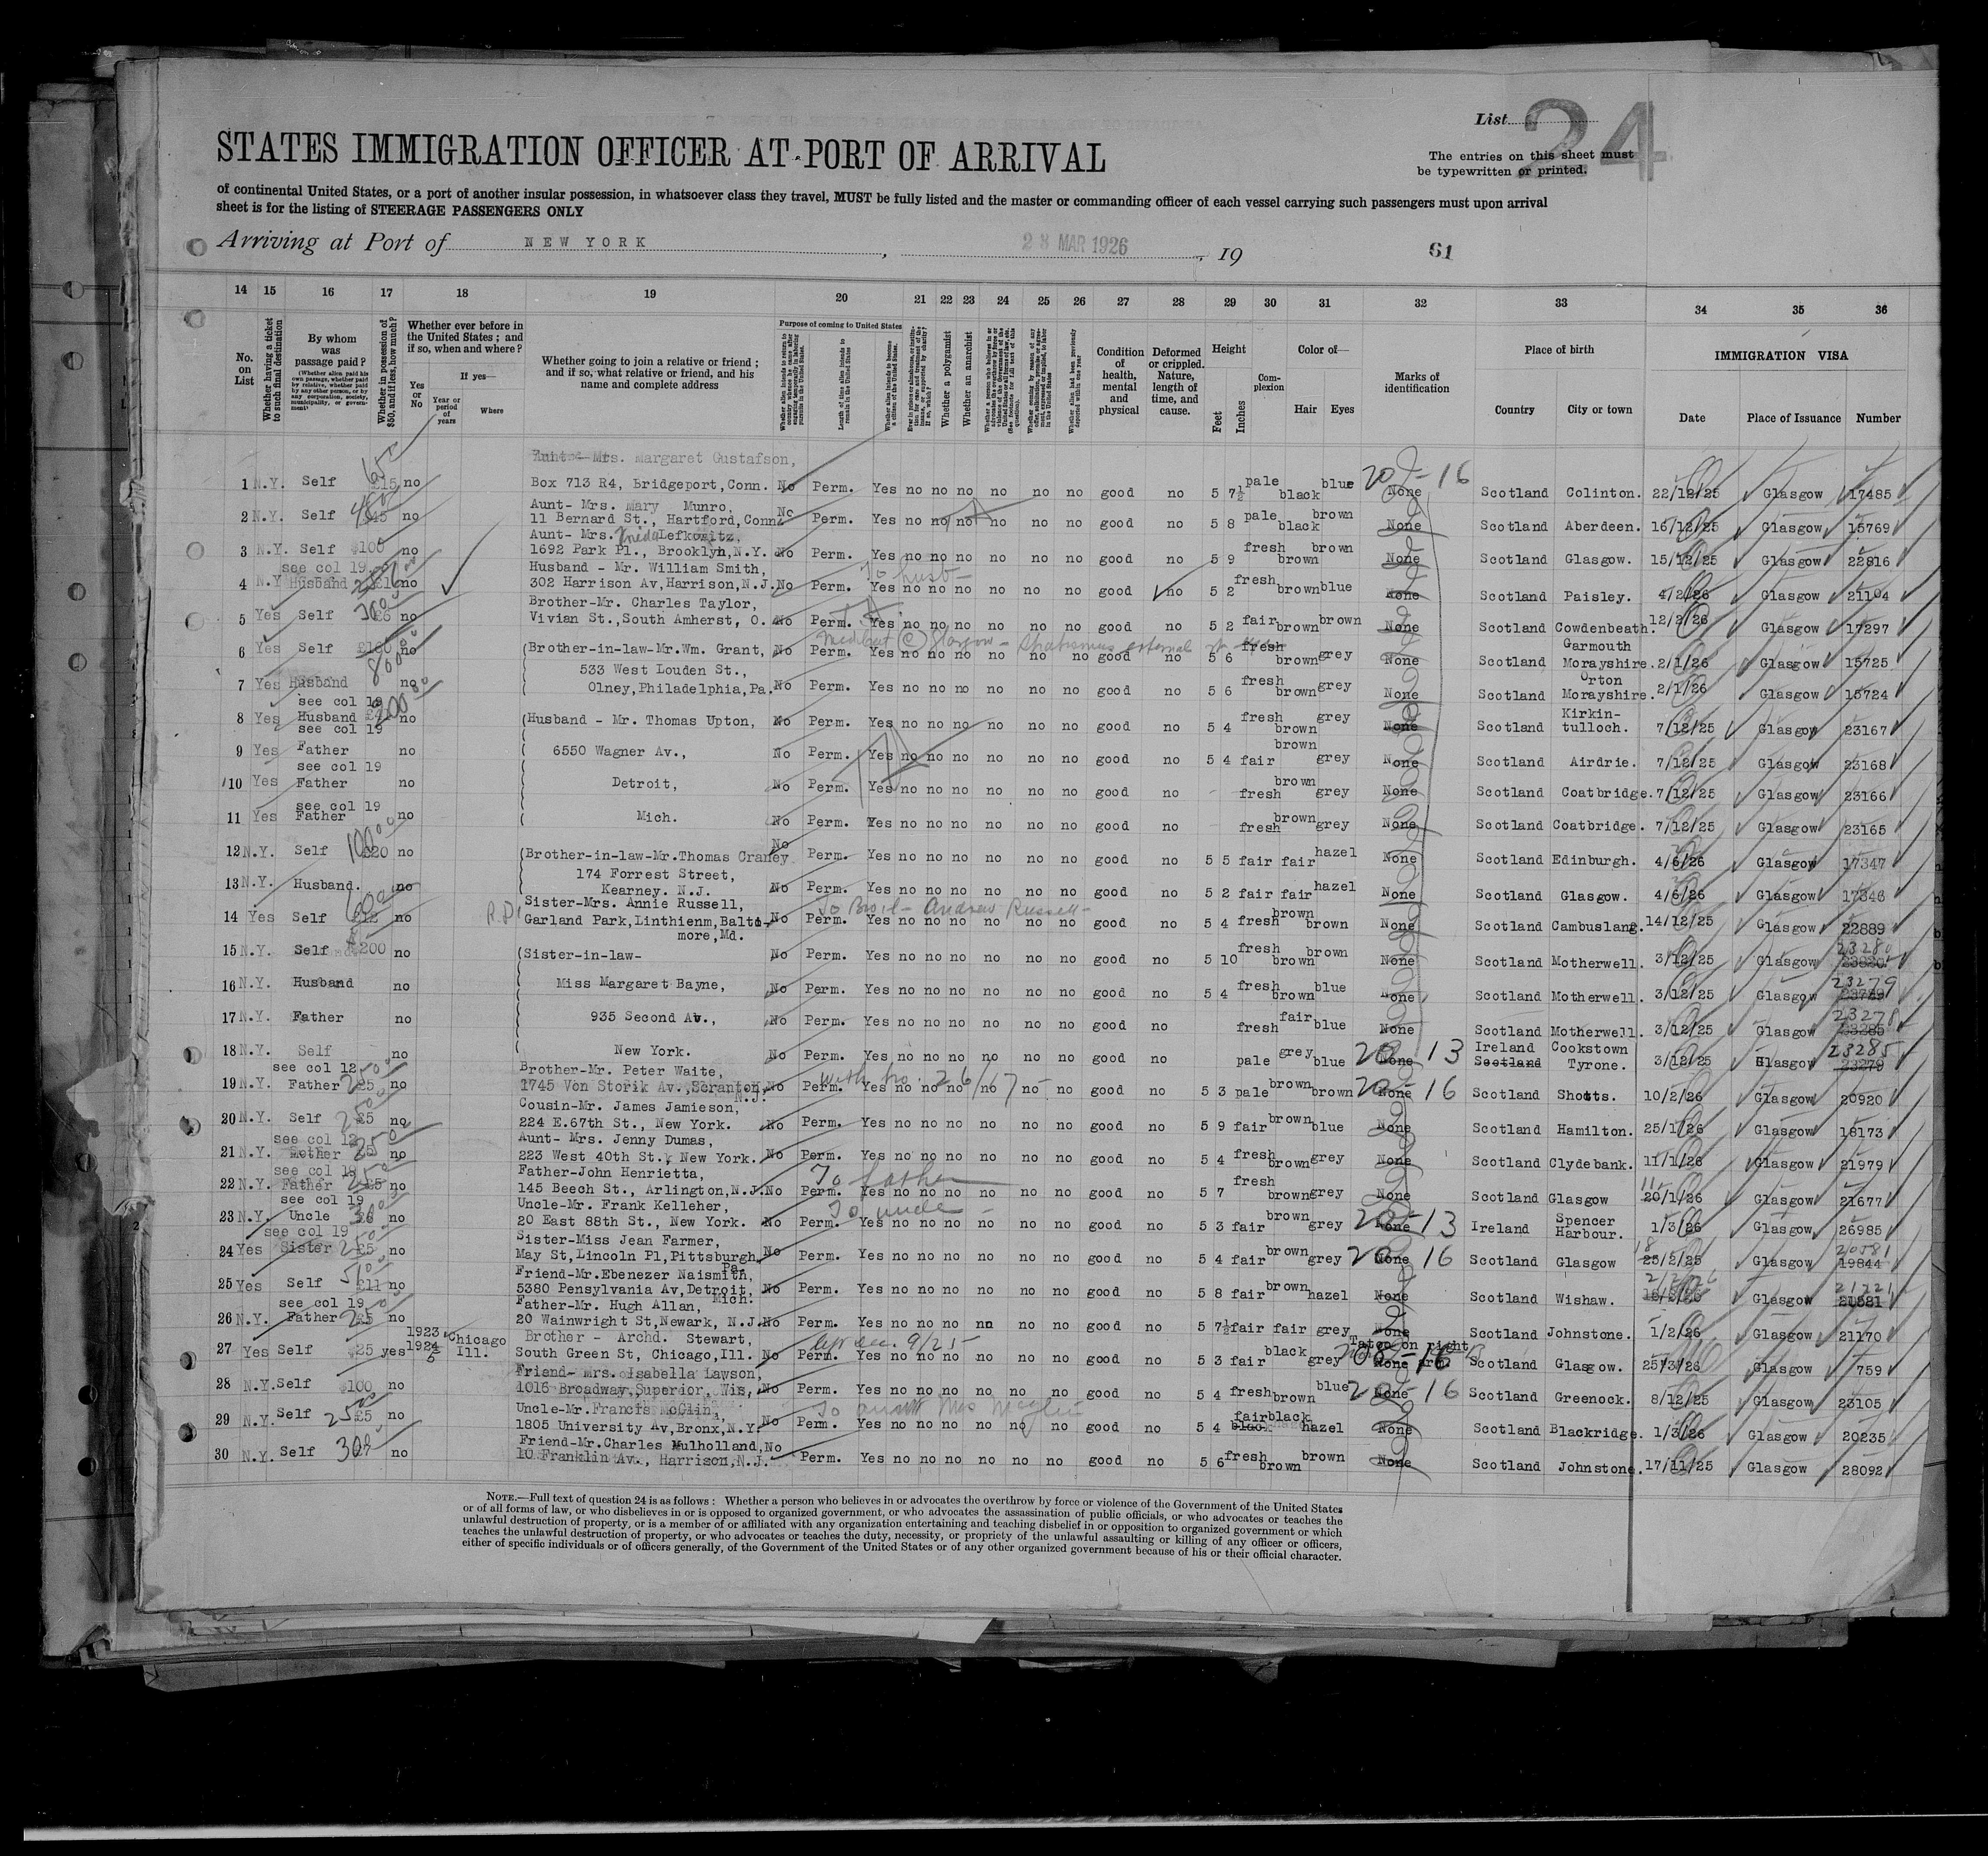 List 24
STATES IMMIGRATION OFFICER AT PORT OF ARRIVAL
The entries on this sheet must
be typewritten or printed.
of continental United States, or a port of another insular possession, in whatsoever class they travel, MUST be fully listed and the master or commanding officer of each vessel carrying such passengers must upon arrival
sheet is for the listing of STEERAGE PASSENGERS ONLY
Arriving at Port of NEW YORK, 28 MAR 1926, 19 61
14 15 16 17 18 19 20 21 22 23 24 25 26 27 28 29 30 31 32 33 34 35 36
No. on List
Whether having a ticket to such final destination
By whom was passage paid?
(Whether alien paid his own passage, whether paid by relative, whether paid by any other person, or by any corporation, society, municipality, or government)
Whether in possession of $50, and if less, how much?
Whether ever before in the United States; and if so, when and where?
Yes or No
If yes—
Year or period of years
Where
Whether going to join a relative or friend; and if so, what relative or friend, and his name and complete address
Purpose of coming to United States
Length of time alien intends to remain in the United States
Whether alien intends to become a citizen of the United States.
Whether a polygamist
Whether an anarchist
Condition of health, mental and physical
Deformed or crippled. Nature, length of time, and cause.
Height
Feet
Inches
Complexion
Color of—
Hair
Eyes
Marks of identification
Place of birth
Country
City or town
IMMIGRATION VISA
Date
Place of Issuance
Number
Aunt - Mrs. Margaret Gustafson,
1 N.Y. Self £15 no Box 713 R4, Bridgeport,Conn. No Perm. Yes no no no no no no good no 5 7½ pale black blue None 20-16 Scotland Colinton. 22/12/25 Glasgow 17485
Aunt- Mrs. Mary Munro,
2 N.Y. Self no 11 Bernard St., Hartford,Conn. No Perm. Yes no no no no no no good no 5 8 pale black brown None Scotland Aberdeen. 16/12/25 Glasgow 15769
Aunt- Mrs. Lefkowitz,
3 N.Y. Self $100 no 1692 Park Pl., Brooklyn,N.Y. No Perm. Yes no no no no no no good no 5 9 fresh brown brown None Scotland Glasgow. 15/12/25 Glasgow 22816
see col 19 Husband - Mr. William Smith, To husb-
4 N.Y. Husband no 302 Harrison Av,Harrison,N.J. No Perm. Yes no no no no no no good no 5 2 fresh brown blue None Scotland Paisley. 4/2/26 Glasgow 21104
Brother-Mr. Charles Taylor,
5 Yes Self £6 no Vivian St.,South Amherst, O. No Perm. Yes no no no no no no good no 5 2 fair brown brown None Scotland Cowdenbeath. 12/2/26 Glasgow 17297
6 Yes Self £160 no Brother-in-law-Mr.Wm. Grant, No Perm. Yes no no no no no no good no 5 6 fresh brown grey None Scotland Garmouth Morayshire. 2/1/26 Glasgow 15725
533 West Louden St.,
7 Yes Husband no Olney,Philadelphia,Pa. No Perm. Yes no no no no no no good no 5 6 fresh brown grey None Scotland Orton Morayshire. 2/1/26 Glasgow 15724
see col 19
8 Yes Husband no Husband - Mr. Thomas Upton, No Perm. Yes no no no no no no good no 5 4 fresh brown grey None Scotland Kirkintulloch. 7/12/25 Glasgow 23167
see col 19
9 Yes Father no 6550 Wagner Av., No Perm. Yes no no no no no no good no 5 4 fair brown grey None Scotland Airdrie. 7/12/25 Glasgow 23168
see col 19
10 Yes Father no Detroit, No Perm. Yes no no no no no no good no - fresh brown grey None Scotland Coatbridge. 7/12/25 Glasgow 23166
see col 19
11 Yes Father no Mich. No Perm. Yes no no no no no no good no - fresh brown grey None Scotland Coatbridge. 7/12/25 Glasgow 23165
12 N.Y. Self £20 no Brother-in-law-Mr.Thomas Craney No Perm. Yes no no no no no no good no 5 5 fair fair hazel None Scotland Edinburgh. 4/6/26 Glasgow 17347
174 Forrest Street,
13 N.Y. Husband. no Kearney. N.J. No Perm. Yes no no no no no no good no 5 2 fair fair hazel None Scotland Glasgow. 4/6/26 Glasgow 17346
Sister-Mrs. Annie Russell, To Bro il- Andrew Russell-
14 Yes Self no Garland Park,Linthienm,Balto- No Perm. Yes no no no no no no good no 5 4 fresh brown brown None Scotland Cambuslang. 14/12/25 Glasgow 22889
more,Md.
15 N.Y. Self $200 no Sister-in-law- No Perm. Yes no no no no no no good no 5 10 fresh brown brown None Scotland Motherwell. 3/12/25 Glasgow 23280
16 N.Y. Husband no Miss Margaret Bayne, No Perm. Yes no no no no no no good no 5 4 fresh brown blue None Scotland Motherwell. 3/12/25 Glasgow 23279
17 N.Y. Father no 935 Second Av., No Perm. Yes no no no no no no good no fresh fair blue None Scotland Motherwell. 3/12/25 Glasgow 23278
18 N.Y. Self no New York. No Perm. Yes no no no no no no good no pale grey blue None 20-13 Ireland Scotland Cookstown Tyrone. 3/12/25 Glasgow 23285 23279
see col 12 Brother-Mr. Peter Waite,
19 N.Y. Father £5 no 1745 Von Storik Av.,Scranton, N.J. No Perm. Yes no no no no no no good no 5 3 pale brown brown None 20-16 Scotland Shotts. 10/2/26 Glasgow 20920
Cousin-Mr. James Jamieson,
20 N.Y. Self £5 no 224 E.67th St., New York. No Perm. Yes no no no no no no good no 5 9 fair brown blue None Scotland Hamilton. 25/1/26 Glasgow 18173
see col 12 Aunt- Mrs. Jenny Dumas,
21 N.Y. Mother £5 no 223 West 40th St., New York. No Perm. Yes no no no no no no good no 5 4 fresh brown grey None Scotland Clydebank. 11/1/26 Glasgow 21979
see col 19 Father-John Henrietta, To father
22 N.Y. Father £5 no 145 Beech St., Arlington,N.J. No Perm. Yes no no no no no no good no 5 7 fresh brown grey None Scotland Glasgow 20/1/26 Glasgow 21677
see col 19 Uncle-Mr. Frank Kelleher, To uncle
23 N.Y. Uncle no 20 East 88th St., New York. No Perm. Yes no no no no no no good no 5 3 fair brown grey None 20-13 Ireland Spencer Harbour. 1/3/26 Glasgow 26985
see col 19 Sister-Miss Jean Farmer,
24 Yes Sister £5 no May St,Lincoln Pl,Pittsburgh, Pa. No Perm. Yes no no no no no no good no 5 4 fair brown grey None 20-16 Scotland Glasgow 18 25/2/25 Glasgow 20581 19844
Friend-Mr.Ebenezer Naismith,
25 Yes Self £11 no 5380 Pensylvania Av,Detroit, Mich. No Perm. Yes no no no no no no good no 5 8 fair brown hazel None Scotland Wishaw. Glasgow 21221
see col 19 Father-Mr. Hugh Allan,
26 N.Y. Father £5 no 20 Wainwright St,Newark, N.J. No Perm. Yes no no no no no no good no 5 7½ fair fair grey None Scotland Johnstone. 1/2/26 Glasgow 21170
1923 Chicago Brother - Archd. Stewart, 9/25
27 Yes Self $25 yes 1924 Ill. South Green St, Chicago,Ill. No Perm. Yes no no no no no no good no 5 3 fair black grey Tatoo on right arm. None Scotland Glasgow. 25/3/26 Glasgow 759
Friend- Mrs. Isabella Lawson,
28 N.Y. Self $100 no 1016 Broadway,Superior, Wis, No Perm. Yes no no no no no no good no 5 4 fresh brown blue None 20-16 Scotland Greenock. 8/12/25 Glasgow 23105
Uncle-Mr.Francis McGlin,
29 N.Y. Self £5 no 1805 University Av,Bronx,N.Y. No Perm. Yes no no no no no no good no 5 4 fair black hazel None Scotland Blackridge. 1/3/26 Glasgow 20235
Friend-Mr.Charles Mulholland,
30 N.Y. Self no 10 Franklin Av., Harrison,N.J. No Perm. Yes no no no no no no good no 5 6 fresh brown brown None Scotland Johnstone. 17/11/25 Glasgow 28092
NOTE.—Full text of question 24 is as follows: Whether a person who believes in or advocates the overthrow by force or violence of the Government of the United States
or of all forms of law, or who disbelieves in or is opposed to organized government, or who advocates the assassination of public officials, or who advocates or teaches the
unlawful destruction of property, or is a member of or affiliated with any organization entertaining and teaching disbelief in or opposition to organized government or which
teaches the unlawful destruction of property, or who advocates or teaches the duty, necessity, or propriety of the unlawful assaulting or killing of any officer or officers,
either of specific individuals or of officers generally, of the Government of the United States or of any other organized government because of his or their official character.